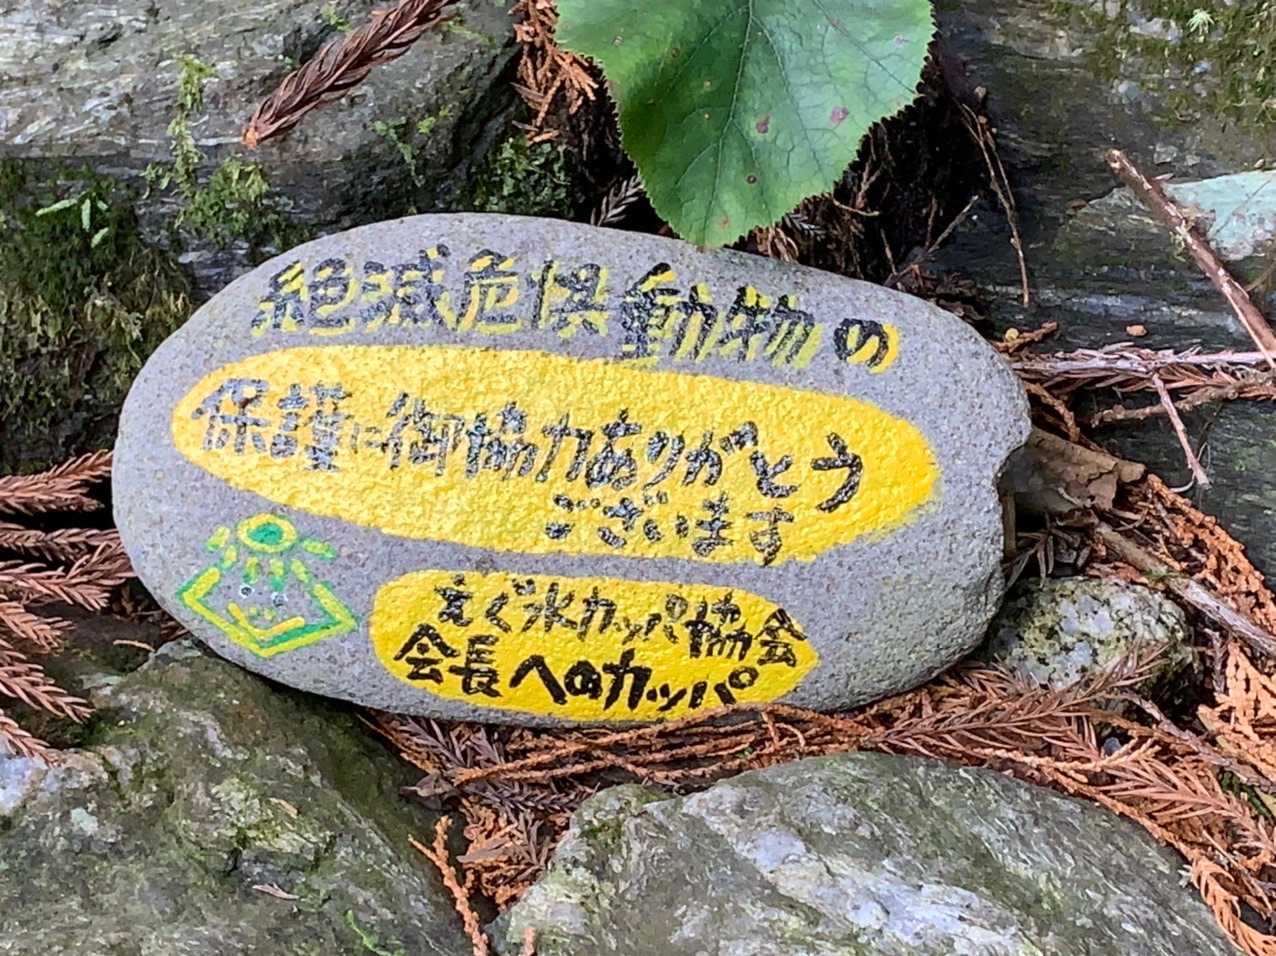 絶滅危惧動物の
保護に御協力ありがとう
ございます
えぐ氷カッパ協会
会長へのカッパ